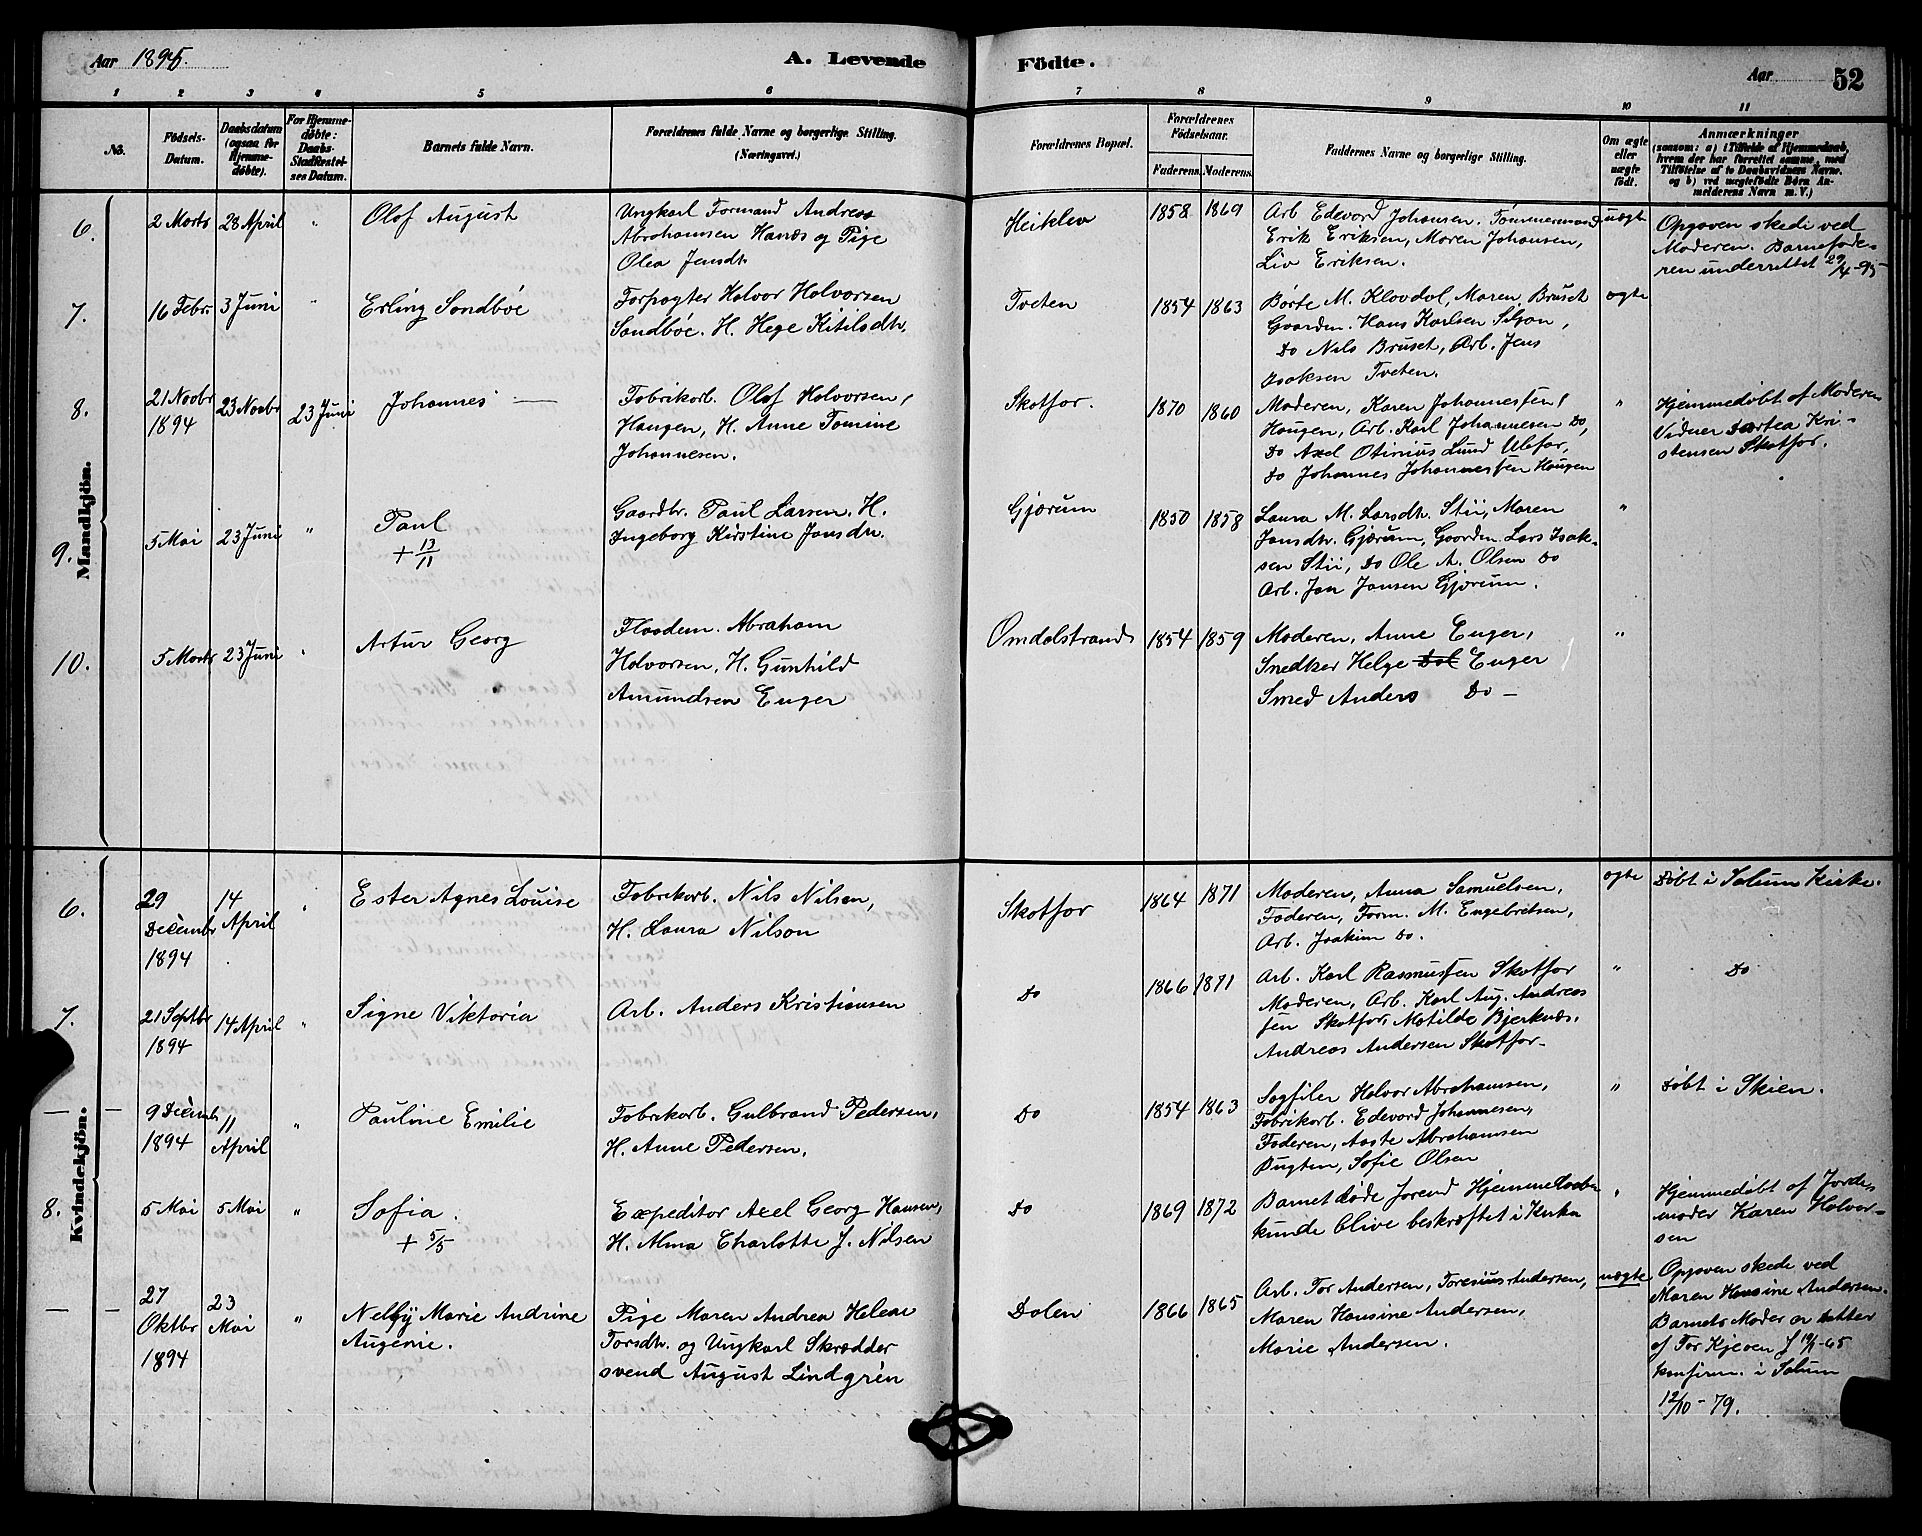 Aar 1895.
A. Levende
Födte.
Aar
52
1 2 3 4 5 6 7 8 9 10 11
No.
Fødsels-
Datum.
Daabsdatum
(ogsaa for
Hjemme-
døbte).
For Hjemme-
døbte:
Daabs-
Stadfæstel-
ses Datum.
Barnets fulde Navn.
Forældrenes fulde Navne og borgerlige Stilling.
(Næringsvei.)
Forældrenes Bopæl.
Forældrenes
Fødselsaar.
Faderens. Moderens.
Faddernes Navne og borgerlige Stilling.
Om ægte
eller
uægte
født.
Anmærkninger
(saasom: a) i Tilfælde af Hjemmedaab,
hvem der har forrettet samme, med
Tilføielse af to Daabsvidners Navne.
og b) ved uægtefødte Børn An-
melderens Navn m. V.)
Mandkjön.
6.
2 Marts
28 April
"
Olaf August
Ungkarl Formand Andreas
Abrahamsen Hanæs og Pige
Olea Jensdtr.
Heikleva
1858
1869
Arb. Edevard Johansen. Tømmermand
Erik Eriksen, Maren Johansen,
Liv Eriksen.
uægte
Opgaven skede ved
Moderen. Barnefade-
ren underrettet 29/4-95
7.
16 Febr.
3 Juni
"
Erling Sandbøe
Forpagter Halvor Halvorsen
Sandbøe. H. Hege Kitilsdtr.
Tveten
1854
1863
Børte M. Klovdal, Maren Bruset
Gaarden. Hans Karlsen Siljan,
Do Nils Bruset, Arb. Jens
Isaksen Tveten.
ægte
8.
21 Novbr
1894
23 Novbr
23 Juni
Johannes —
Fabrikarb. Olaf Halvorsen,
Haugen, H. Anne Tomine
Johannesen.
Skotfos.
1870
1860
Moderen, Karen Johannessen,
Haugen, Arb. Karl Johannesen Do,
Do Axel Otinius Lund Ulefos,
Do Johannes Johannessen Haugen
"
Hjemmedøbt af Moderen
Vidner Dortea Kri-
stensen Skotfos.
9.
5 Mai
23 Juni
"
Paul
+ 13/11
Gaardbr. Paul Larsen. H.
Ingeborg Kirstine Jansdtr.
Gjærum
1850
1858
Laura M. Larsdtr. Stii, Maren
Jansdtr. Gjærum, Gaarden. Lars Isak-
sen Stii, Do Ole A. Olsen Do
Arb. Jan Jansen Gjærum.
"
10.
5 Marts
23 Juni
"
Artur Georg
Flaadem. Abraham
Halvorsen, H. Gunhild
Amundsen Enger
Omdalstrand
1854
1859
Moderen, Anne Enger,
Snedker Helge Dal Enger
Smed Anders Do —
"
Kvindekjön.
6.
29
Decembr
1894
14
April
"
Ester Agnes Louise
Fabrikarb. Nils Nilsen,
H. Laura Nilson
Skotfos
1864
1871
Moderen, Anna Samuelsen,
Faderen, Form. M. Engebretsen,
Arb. Joakim Do.
ægte
Døbt i Solum Kirke.
7.
21 Septbr
1894
14 April
"
Signe Viktoria
Arb. Anders Kristiansen
Do
1866
1871
Arb. Karl Rasmussen Skotfos
Moderen, Arb. Karl Aug. Andreas
sen Skotfos, Matilde Bjerknæs.
Andreas Andersen Skotfos-
"
Do
—
9 Decemb
1894
11
April
"
Pauline Emilie
Fabrikarb. Gulbrand Pedersen,
H. Anne Pedersen.
Do
1854
1863
Sagfiler Halvor Abrahamsen,
Fabrikarb. Edevard Johannesen,
Faderen, Aaste Abrahamsen
Bugten, Sofie Olsen
"
Døbt i Skien.
8.
5 Mai
5 Mai
"
Sofia.
+ 5/5
Expeditør Axel Georg Hansen,
H. Alma Charlotte J. Nilsen
Do
1869
1872
Barnet døde forend Hjemmedaaben
kunde blive bekræftet i Kirka
"
Hjemmedøbt af Jorde-
moder Karen Halvor-
sen
—
27
Oktbr
1894
23
Mai
"
Nelly Marie Andrine
Augenie.
Pige Maren Andrea Helene
Torsdtr. og Ungkarl Skrædder
svend August Lindgrén
Dalen
1866
1865
Arb. Tor Andersen, Toresius Andersen,
Maren Hansine Andersen,
Marie Andersen.
uægte
Opgaven skede ved
Maren Hansine Andersen.
Barnets Moder er datter
af Tor Kjeøen
konfirm. i Solum
12/10-79.